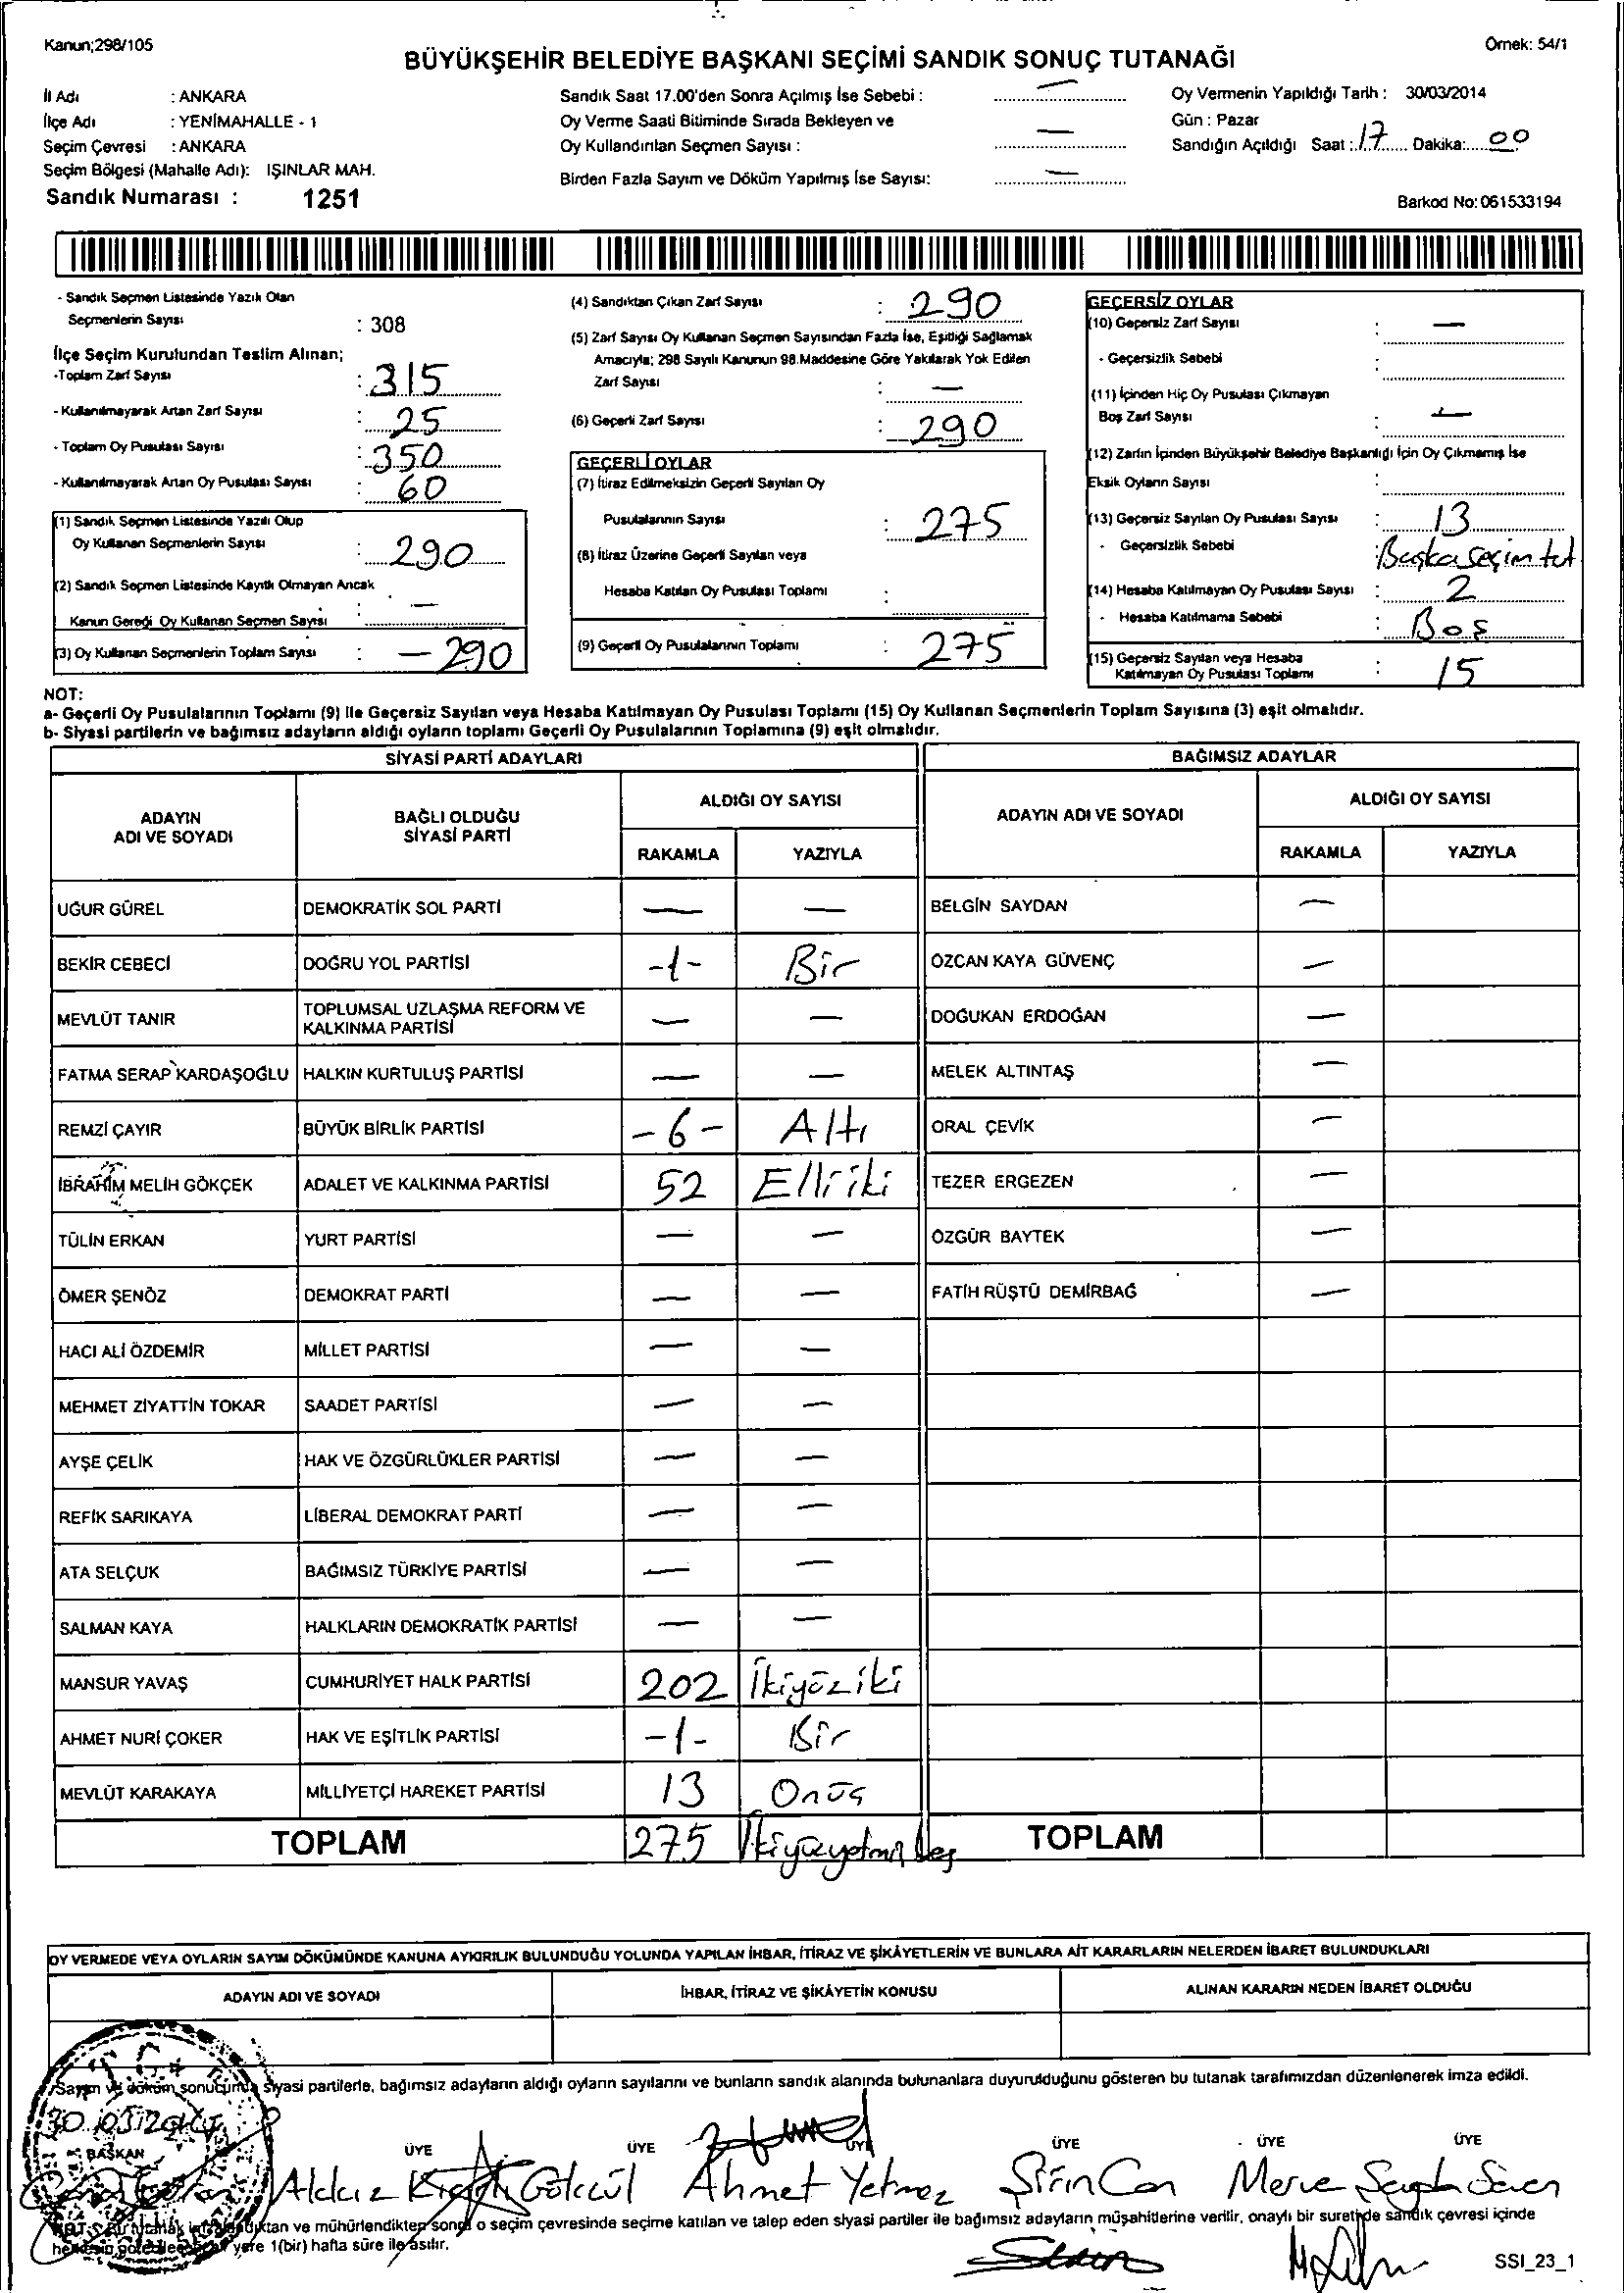 Kanun;298/105
Örnek: 54/1
BÜYÜKŞEHİR BELEDİYE BAŞKANI SEÇİMİ SANDIK SONUÇ TUTANAĞI
İl Adı : ANKARA
İlçe Adı : YENİMAHALLE - 1
Seçim Çevresi : ANKARA
Seçim Bölgesi (Mahalle Adı): IŞINLAR MAH.
Sandık Numarası : 1251
Sandık Saat 17.00'den Sonra Açılmış İse Sebebi : —
Oy Verme Saati Bitiminde Sırada Bekleyen ve
Oy Kullandırılan Seçmen Sayısı : —
Birden Fazla Sayım ve Döküm Yapılmış İse Sayısı: —
Oy Vermenin Yapıldığı Tarih : 30/03/2014
Gün : Pazar
Sandığın Açıldığı Saat :.17...... Dakika:.....00
Barkod No:061533194
- Sandık Seçmen Listesinde Yazılı Olan
Seçmenlerin Sayısı : 308
İlçe Seçim Kurulundan Teslim Alınan;
-Toplam Zarf Sayısı : 315
- Kullanılmayarak Artan Zarf Sayısı : 25
- Toplam Oy Pusulası Sayısı : 350
- Kullanılmayarak Artan Oy Pusulası Sayısı : 60
(1) Sandık Seçmen Listesinde Yazılı Olup
Oy Kullanan Seçmenlerin Sayısı : 290
(2) Sandık Seçmen Listesinde Kayıtlı Olmayan Ancak
Kanun Gereği Oy Kullanan Seçmen Sayısı : —
(3) Oy Kullanan Seçmenlerin Toplam Sayısı : — 290
(4) Sandıktan Çıkan Zarf Sayısı : 290
(5) Zarf Sayısı Oy Kullanan Seçmen Sayısından Fazla İse, Eşitliği Sağlamak
Amacıyla; 298 Sayılı Kanunun 98.Maddesine Göre Yakılarak Yok Edilen
Zarf Sayısı : —
(6) Geçerli Zarf Sayısı : 290
GEÇERLİ OYLAR
(7) İtiraz Edilmeksizin Geçerli Sayılan Oy
Pusulalarının Sayısı : 275
(8) İtiraz Üzerine Geçerli Sayılan veya
Hesaba Katılan Oy Pusulası Toplamı :
(9) Geçerli Oy Pusulalarının Toplamı : 275
GEÇERSİZ OYLAR
(10) Geçersiz Zarf Sayısı : —
- Geçersizlik Sebebi :
(11) İçinden Hiç Oy Pusulası Çıkmayan
Boş Zarf Sayısı : —
(12) Zarfın İçinden Büyükşehir Belediye Başkanlığı İçin Oy Çıkmamış İse
Eksik Oyların Sayısı :
(13) Geçersiz Sayılan Oy Pusulası Sayısı : 13
- Geçersizlik Sebebi : Başka seçim tut
(14) Hesaba Katılmayan Oy Pusulası Sayısı : 2
- Hesaba Katılmama Sebebi : Boş
(15) Geçersiz Sayılan veya Hesaba
Katılmayan Oy Pusulası Toplamı : 15
NOT:
a- Geçerli Oy Pusulalarının Toplamı (9) ile Geçersiz Sayılan veya Hesaba Katılmayan Oy Pusulası Toplamı (15) Oy Kullanan Seçmenlerin Toplam Sayısına (3) eşit olmalıdır.
b- Siyasi partilerin ve bağımsız adayların aldığı oyların toplamı Geçerli Oy Pusulalarının Toplamına (9) eşit olmalıdır.
SİYASİ PARTİ ADAYLARI BAĞIMSIZ ADAYLAR
ADAYIN ADI VE SOYADI BAĞLI OLDUĞU SİYASİ PARTİ ALDIĞI OY SAYISI ADAYIN ADI VE SOYADI ALDIĞI OY SAYISI
RAKAMLA YAZIYLA RAKAMLA YAZIYLA
UĞUR GÜREL DEMOKRATİK SOL PARTİ — — BELGİN SAYDAN —
BEKİR CEBECİ DOĞRU YOL PARTİSİ -1- Bir ÖZCAN KAYA GÜVENÇ —
MEVLÜT TANIR TOPLUMSAL UZLAŞMA REFORM VE KALKINMA PARTİSİ — — DOĞUKAN ERDOĞAN —
FATMA SERAP KARDAŞOĞLU HALKIN KURTULUŞ PARTİSİ — — MELEK ALTINTAŞ —
REMZİ ÇAYIR BÜYÜK BİRLİK PARTİSİ -6- Altı ORAL ÇEVİK —
İBRAHİM MELİH GÖKÇEK ADALET VE KALKINMA PARTİSİ 52 Elliiki TEZER ERGEZEN —
TÜLİN ERKAN YURT PARTİSİ — — ÖZGÜR BAYTEK —
ÖMER ŞENÖZ DEMOKRAT PARTİ — — FATİH RÜŞTÜ DEMİRBAĞ —
HACI ALİ ÖZDEMİR MİLLET PARTİSİ — —
MEHMET ZİYATTİN TOKAR SAADET PARTİSİ — —
AYŞE ÇELİK HAK VE ÖZGÜRLÜKLER PARTİSİ — —
REFİK SARIKAYA LİBERAL DEMOKRAT PARTİ — —
ATA SELÇUK BAĞIMSIZ TÜRKİYE PARTİSİ — —
SALMAN KAYA HALKLARIN DEMOKRATİK PARTİSİ — —
MANSUR YAVAŞ CUMHURİYET HALK PARTİSİ 202 İkiyüziki
AHMET NURİ ÇOKER HAK VE EŞİTLİK PARTİSİ -1- Bir
MEVLÜT KARAKAYA MİLLİYETÇİ HAREKET PARTİSİ 13 Onüç
TOPLAM 275 İkiyüzyetmişbeş TOPLAM
OY VERMEDE VEYA OYLARIN SAYIM DÖKÜMÜNDE KANUNA AYKIRILIK BULUNDUĞU YOLUNDA YAPILAN İHBAR, İTİRAZ VE ŞİKÂYETLERİN VE BUNLARA AİT KARARLARIN NELERDEN İBARET BULUNDUKLARI
ADAYIN ADI VE SOYADI İHBAR, İTİRAZ VE ŞİKÂYETİN KONUSU ALINAN KARARIN NEDEN İBARET OLDUĞU
Sayım ve döküm sonucunda siyasi partilerle, bağımsız adayların aldığı oyların sayılarını ve bunların sandık alanında bulunanlara duyurulduğunu gösteren bu tutanak tarafımızdan düzenlenerek imza edildi.
30.03.2014
BAŞKAN ÜYE ÜYE ÜYE ÜYE ÜYE ÜYE
Ahmet Yetmez Şirin Can Merve
NOT: Bu tutanak imzalandıktan ve mühürlendikten sonra o seçim çevresinde seçime katılan ve talep eden siyasi partiler ile bağımsız adayların müşahitlerine verilir, onaylı bir suretide sandık çevresi içinde
herkesin görebileceği bir yere 1(bir) hafta süre ile asılır.
SSI_23_1